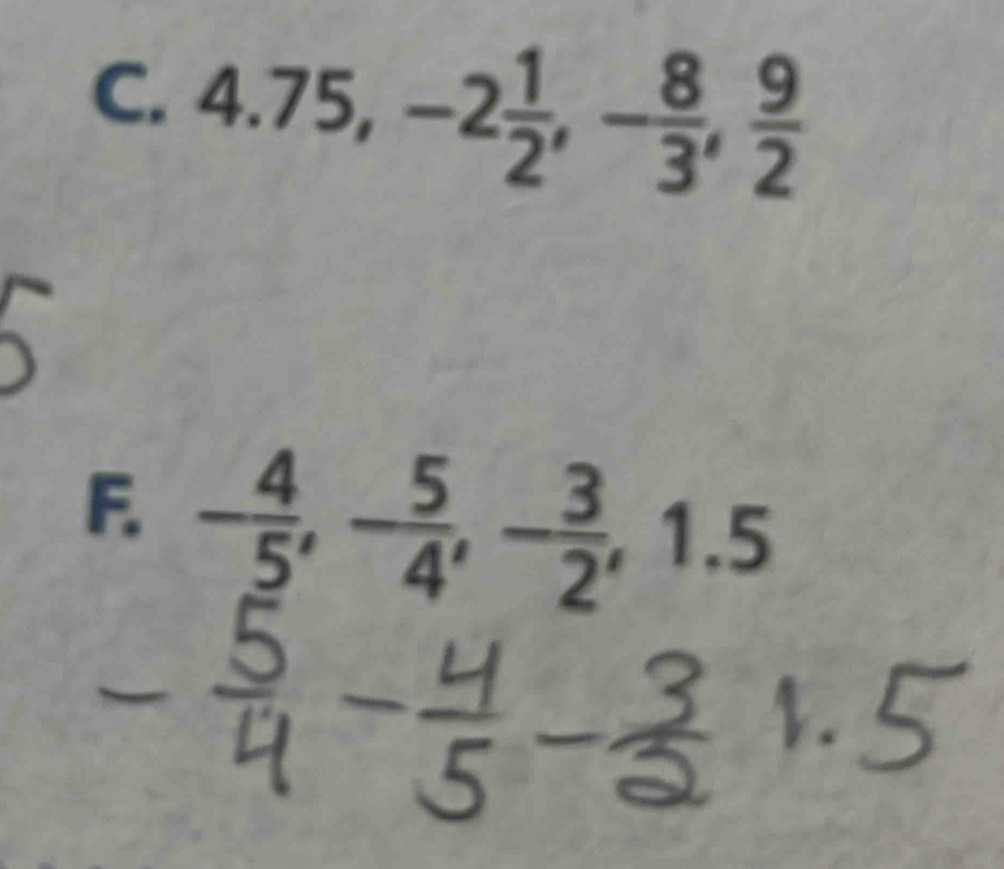 C. 4.75, -2 1/2, -8/3, 9/2
5
F. -4/5, -5/4, -3/2, 1.5
-5/4 -4/5 -3/2 1.5